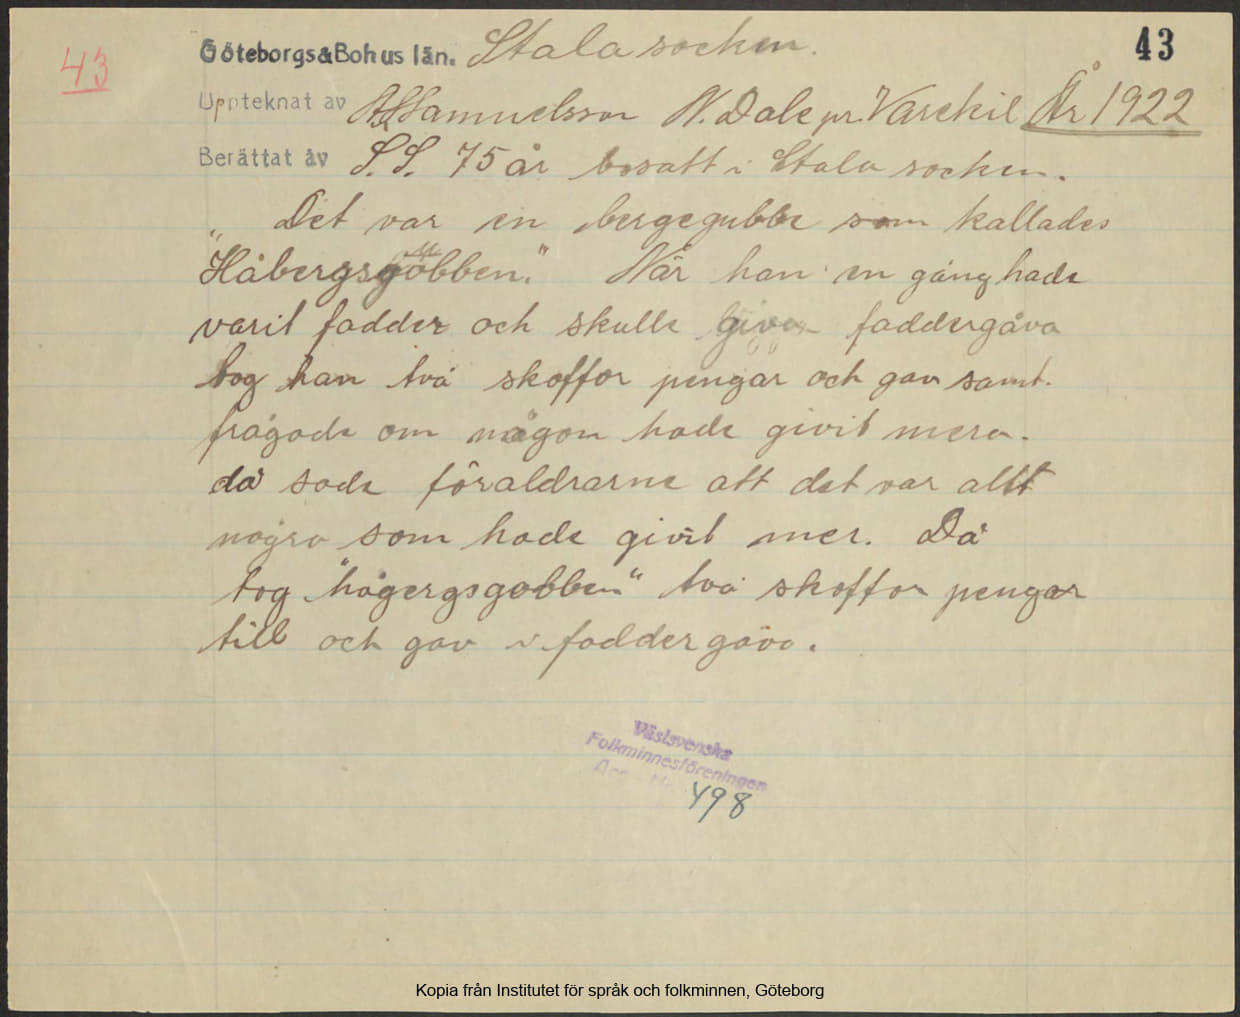 43
Göteborgs & Bohus län. Stala socken.
43
Uppteknat av Samuelsson N. Dale pr. Varekil År 1922
Berättat av S. S. 75 år bosatt i Stala socken.
„ Det var en bergegubbe som kallades
"Håbergsgöbben." När han en gång hade
varit fadder och skulle giva faddergåva
tog han två skoffor pengar och gav samt.
frågade om någon hade givit mera.
då sade föraldrarne att det var allt
några som hade givit mer. Då
tog "hågergsgobben" två skoffor pengar
till och gav i faddergåva.
Västsvenska
Folkminnesföreningen
Acc. Nr
498
Kopia från Institutet för språk och folkminnen, Göteborg